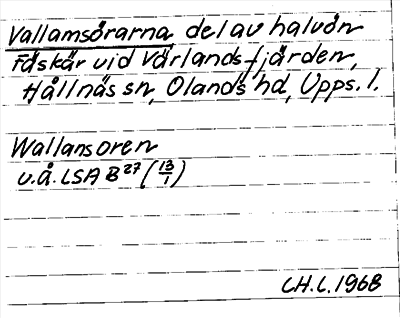 Vallamsörarna, del av halvön
Fäskär vid Värlandsfjärden,
Hållnäs sn, Olands hd, Upps. l.
Wallansoren
u.å. LSA B²⁷ (13/1)
CH.L. 1968